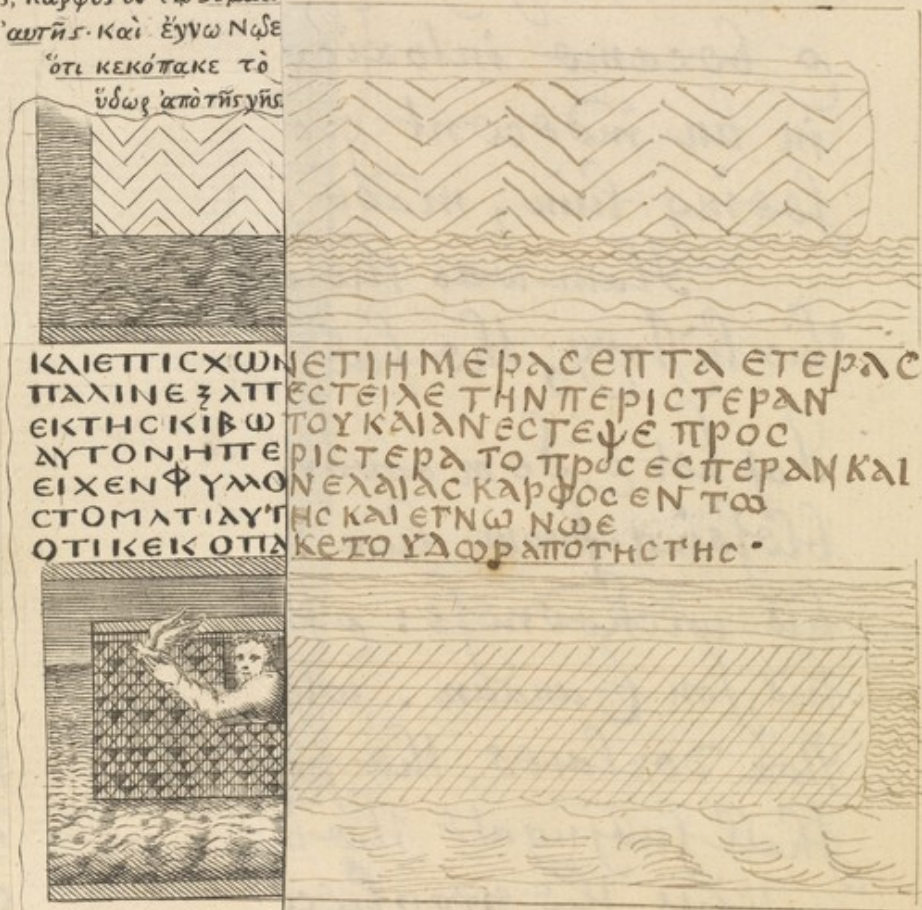 αὐτῆς· Καὶ ἔγνω Νῶε
ὅτι κεκόπακε τὸ
ὕδωρ ἀπὸ τῆς γῆς.
ΚΑΙΕΠΙϹΧΩΝΕΤΙΗΜΕΡΑϹΕΠΤΑ ΕΤΕΡΑϹ
ΠΑΛΙΝΕΞΑΠΕϹΤΕΙΛΕ ΤΗΝΠΕΡΙϹΤΕΡΑΝ
ΕΚΤΗϹΚΙΒΩΤΟΥ ΚΑΙΑΝΕϹΤΕΨΕ ΠΡΟϹ
ΑΥΤΟΝΗΠΕΡΙϹΤΕΡΑ ΤΟ ΠΡΟϹ ΕϹΠΕΡΑΝ ΚΑΙ
ΕΙΧΕΝΦΥΛΛΟΝ ΕΛΑΙΑϹ ΚΑΡΦΟϹ ΕΝ ΤΩ
ϹΤΟΜΑΤΙΑΥΤΗϹ ΚΑΙ ΕΓΝΩ ΝΩΕ
ΟΤΙΚΕΚΟΠΑΚΕΤΟ ΥΔΩΡ ΑΠΟΤΗϹΓΗϹ·